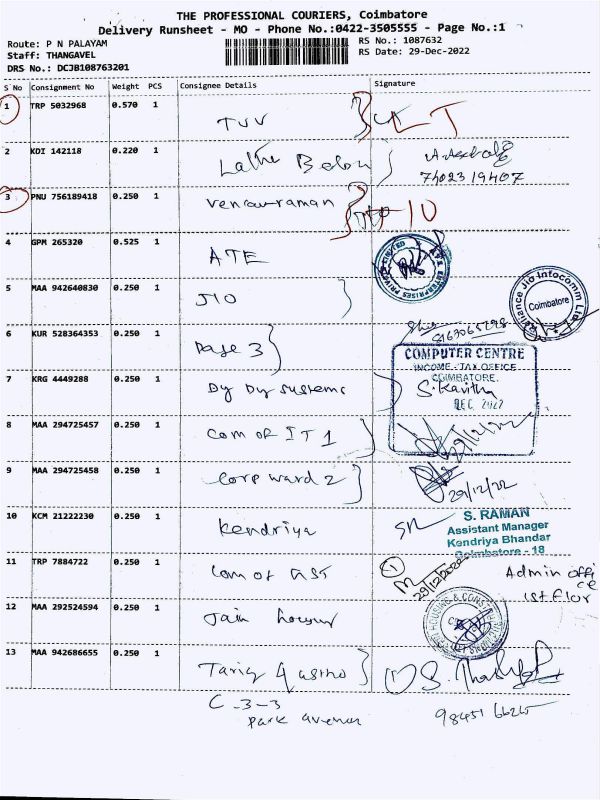 THE PROFESSIONAL COURIERS, Coimbatore
Delivery Runsheet - MO - Phone No.:0422-3505555 - Page No.:1
Route: P N PALAYAM
Staff: THANGAVEL
DRS No.: DCJB108763201
RS No.: 1087632
RS Date: 29-Dec-2022
S No Consignment No Weight PCS Consignee Details Signature
1 TRP 5032968 0.570 1 TVV LT
2 KDI 142118 0.220 1
7402319407
3 PNU 756189418 0.250 1
4 GPM 265320 0.525 1 ATE
5 MAA 942640830 0.250 1 JIO
Reliance Jio Infocomm Ltd
Coimbatore
6 KUR 528364353 0.250 1 Page 3
COMPUTER CENTRE
INCOME-TAX OFFICE
COIMBATORE.
7 KRG 4449288 0.250 1 Dy Dy systems S. Kavitha
DEC 2022
8 MAA 294725457 0.250 1 Com of IT 1 29/12/22
9 MAA 294725458 0.250 1 Corp ward 2 29/12/22
10 KCM 21222230 0.250 1 Kendriya
S. RAMAN
Assistant Manager
Kendriya Bhandar
Coimbatore - 18
11 TRP 7884722 0.250 1 Com of GST
29/12/2022
Admin office
1st Flor
12 MAA 292524594 0.250 1 Jain
13 MAA 942686655 0.250 1
C-3-3
Park avenue